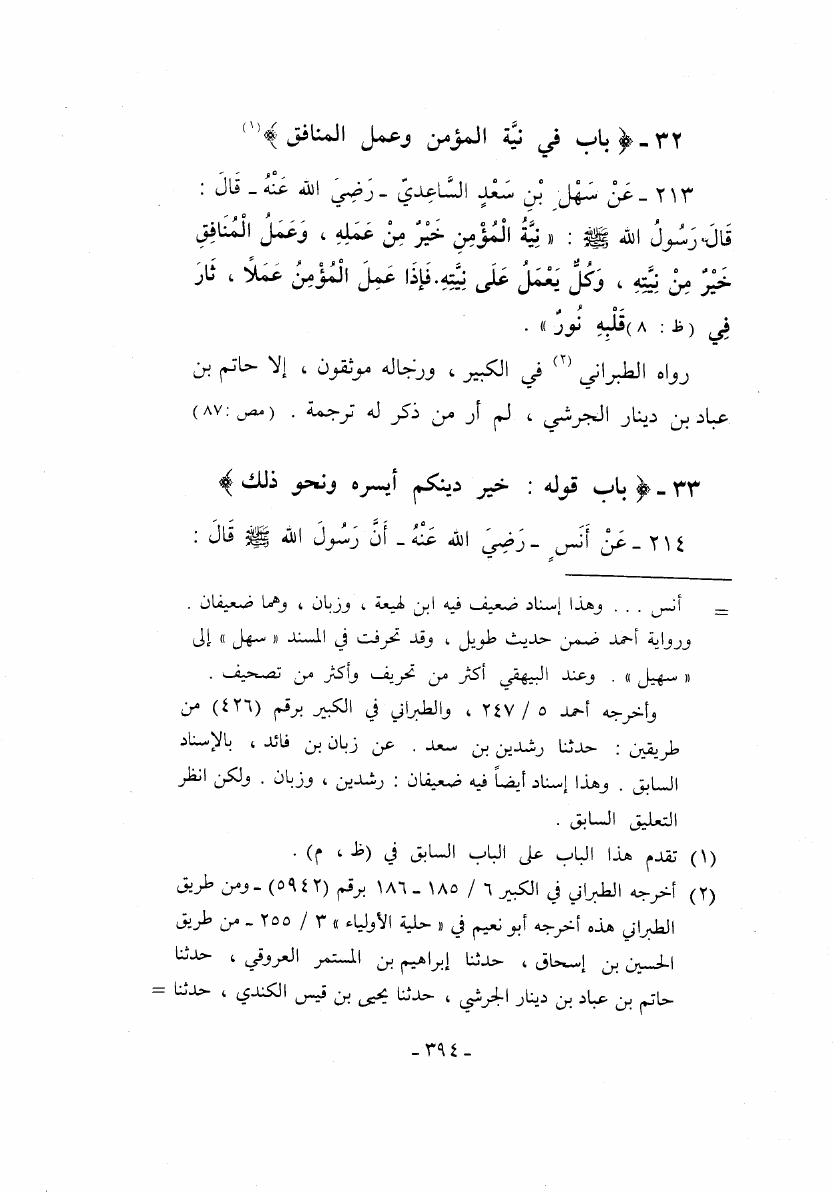 ٣٢ - ﴿ باب في نيَّة المؤمن وعمل المنافق ﴾(١)
٢١٣ - عَنْ سَهْلِ بْنِ سَعْدٍ السَّاعِدِيّ - رَضِيَ الله عَنْهُ - قَالَ :
قَالَ رَسُولُ الله ﷺ : « نِيَّةُ الْمُؤْمِنِ خَيْرٌ مِنْ عَمَلِهِ ، وَعَمَلُ الْمُنَافِقِ
خَيْرٌ مِنْ نِيَّتِهِ ، وَكُلٌّ يَعْمَلُ عَلَى نِيَّتِهِ. فَإِذَا عَمِلَ الْمُؤْمِنُ عَمَلاً ، ثَارَ
فِي (ظ : ٨) قَلْبِهِ نُورٌ » .
رواه الطبراني (٢) في الكبير ، ورجاله موثقون ، إلا حاتم بن
عباد بن دينار الجرشي ، لم أر من ذكر له ترجمة . (مص :٨٧)
٣٣ - ﴿ باب قوله : خير دينكم أيسره ونحو ذلك ﴾
٢١٤ - عَنْ أَنَسٍ - رَضِيَ الله عَنْهُ - أَنَّ رَسُولَ الله ﷺ قَالَ :
= أنس ... وهذا إسناد ضعيف فيه ابن لهيعة ، وزبان ، وهما ضعيفان .
ورواية أحمد ضمن حديث طويل ، وقد تحرفت في المسند « سهل » إلى
« سهيل » . وعند البيهقي أكثر من تحريف وأكثر من تصحيف .
وأخرجه أحمد ٥ / ٢٤٧ ، والطبراني في الكبير برقم (٤٢٦) من
طريقين : حدثنا رشدين بن سعد . عن زبان بن فائد ، بالإسناد
السابق . وهذا إسناد أيضاً فيه ضعيفان : رشدين ، وزبان . ولكن انظر
التعليق السابق .
(١) تقدم هذا الباب على الباب السابق في (ظ ، م) .
(٢) أخرجه الطبراني في الكبير ٦ / ١٨٥ - ١٨٦ برقم (٥٩٤٢) - ومن طريق
الطبراني هذه أخرجه أبو نعيم في « حلية الأولياء » ٣ / ٢٥٥ - من طريق
الحسين بن إسحاق ، حدثنا إبراهيم بن المستمر العروقي ، حدثنا
حاتم بن عباد بن دينار الجرشي ، حدثنا يحيى بن قيس الكندي ، حدثنا =
- ٣٩٤ -